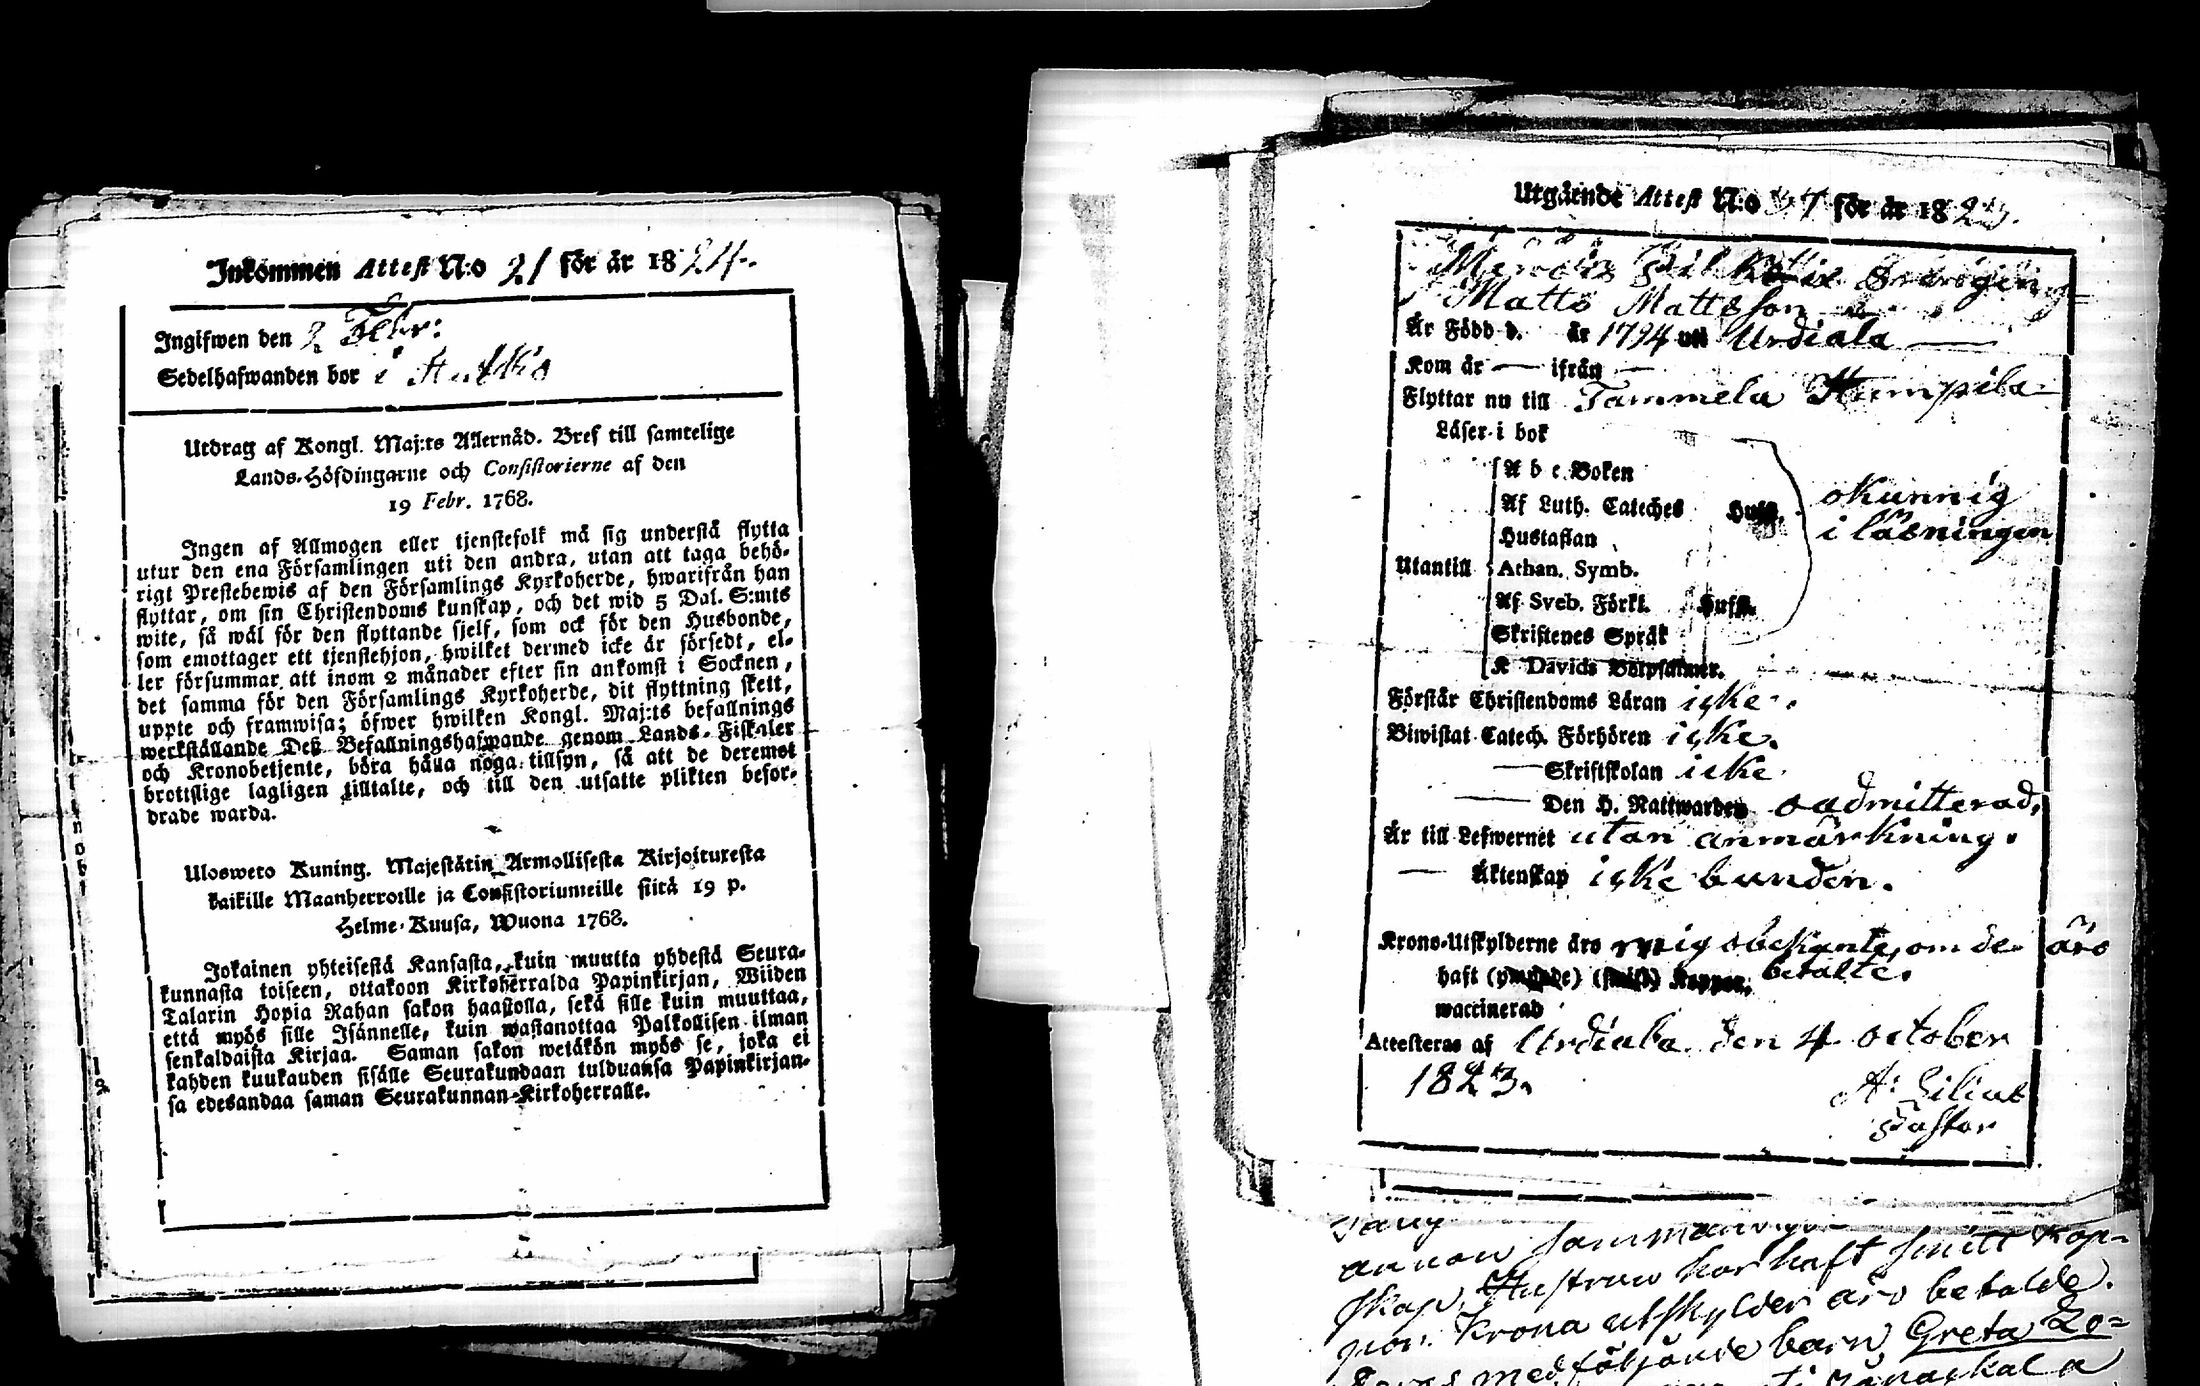 Inkommen Attest N:o 21 för år 1824.
Ingifwen den 2 Febr:
Sedelhafwanden bor i
Utdrag af Kongl. Maj:ts Allernåd. Bref till samtelige
Lands-Höfdingarne och Consistorierne af den
19 Febr. 1768.
Ingen af Allmogen eller tjenstefolk må sig understå flytta
utur den ena Församlingen uti den andra, utan att taga behö-
rigt Prestebewis af den Församlings Kyrkoherde, hwarifrån han
flyttar, om sin Christendoms kunskap, och det wid 5 Dal. S:mts
wite, så wäl för den flyttande sjelf, som ock för den Husbonde,
som emottager ett tjenstehjon, hwilket dermed icke är försedt, el-
ler försummar att inom 2 månader efter sin ankomst i Socknen,
det samma för den Församlings Kyrkoherde, dit flyttning skett,
uppte och framwisa; öfwer hwilken Kongl. Maj:ts befallnings
werkställande Deß Befallningshafwande genom Lands-Fiskaler
och Kronobetjente, böra hålla noga tillsyn, så att de deremot
brottslige lagligen tilltalte, och till den utsatte plikten befor-
drade warda.
Ulosweto Kuning. Majestätin Armollisesta Kirjoituresta
kaikille Maanherroille ja Consistoriumeille siitä 19 p.
Helme-Kuusa, Wuona 1768.
Jokainen yhteisestä Kansasta, kuin muutta yhdestä Seura-
kunnasta toiseen, ottakoon Kirkoherralda Papinkirjan, Wiiden
Talarin Hopia Rahan sakon haastolla, sekä sille kuin muuttaa,
että myös sille Isännelle, kuin wastanottaa Palkollisen ilman
senkaldaista Kirjaa. Saman sakon wetäkön myös se, joka ei
kahden kuukauden sisälle Seurakundaan tulduansa Papinkirjan-
sa edesandaa saman Seurakunnan Kirkoherralle.
Utgående Attest N:o 37 för år 1823.
Matts Mattsson
Är Född d. år 1794 uti Urdiala
Kom år — ifrån —
Flyttar nu till Tammela Humpila
Läser i bok
A b c Boken
Af Luth. Cateches Hufft. okunnig
Hustaflan i läsningen
Utantill Athan. Symb.
Af Sveb. Förkl. Hufft.
Skriftenes Språk
K Davids Botpsalmer.
Förstår Christendoms Läran icke.
Biwistat Catech. Förhören icke.
— Skriftskolan icke
— Den H. Nattwarden oadmitterad,
Är till Lefwernet utan anmärkning.
— Äktenskap icke bunden.
Krono-Utskylderne äro mig obekante, om de äro
haft (ympade) Koppor, betalte.
waccinerad
Attesteras af Urdiala den 4 october
1823. A: Lilius
Pastor
annan
skap, Hustrun har haft smitt kop-
por. Krona utskylder äro betalde.
medföljande barn Greta Lo-